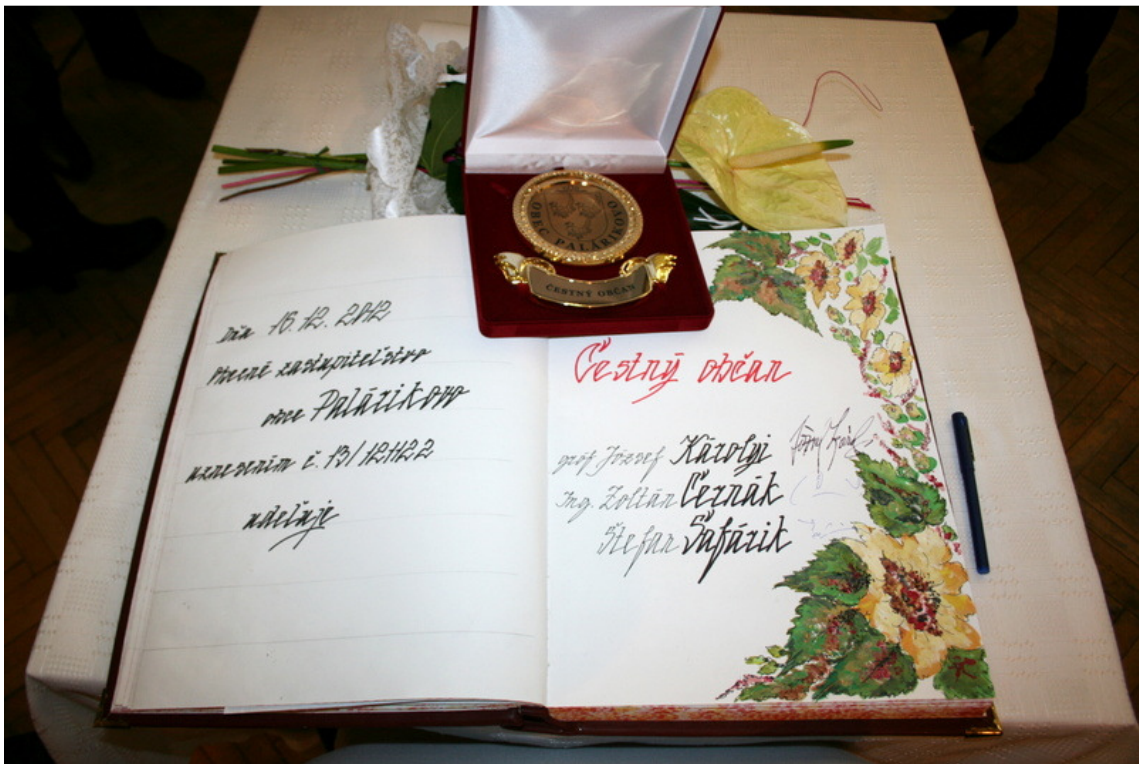 OBEC PALÁRIKOVO
ČESTNÝ OBČAN
Dňa 16.12.2012
Obecné zastupiteľstvo
obce Palárikovo
uznesením č. 13/121122
udeľuje
Čestný občan
gróf József Károlyi
Ing. Zoltán Černák
Štefan Šafárik